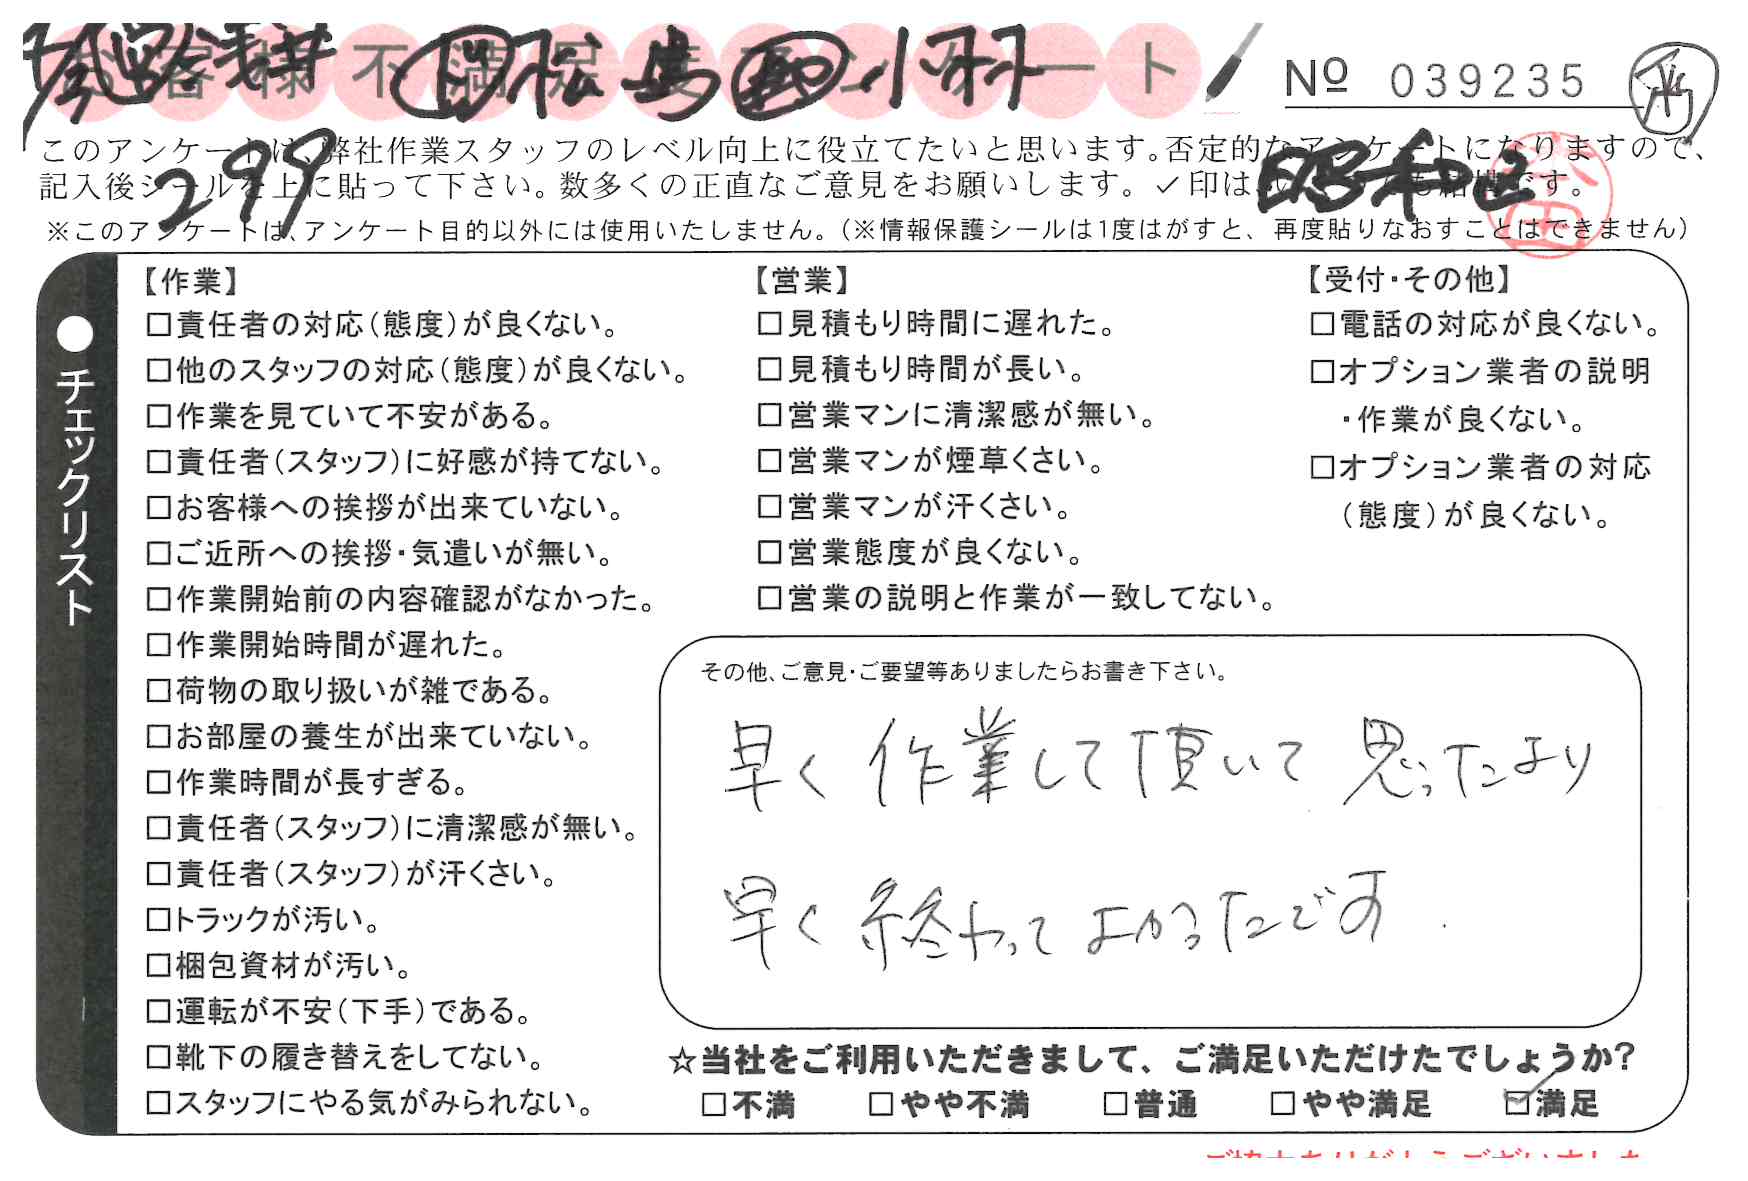 お客様不満足度アンケート
松島 小林
Nº 039235
このアンケートは、弊社作業スタッフのレベル向上に役立てたいと思います。否定的なアンケートになりますので、
記入後シールを上に貼って下さい。数多くの正直なご意見をお願いします。✓印は
299
昭和区
※このアンケートは、アンケート目的以外には使用いたしません。（※情報保護シールは1度はがすと、再度貼りなおすことはできません）
●チェックリスト
【作業】
□責任者の対応（態度）が良くない。
□他のスタッフの対応（態度）が良くない。
□作業を見ていて不安がある。
□責任者（スタッフ）に好感が持てない。
□お客様への挨拶が出来ていない。
□ご近所への挨拶・気遣いが無い。
□作業開始前の内容確認がなかった。
□作業開始時間が遅れた。
□荷物の取り扱いが雑である。
□お部屋の養生が出来ていない。
□作業時間が長すぎる。
□責任者（スタッフ）に清潔感が無い。
□責任者（スタッフ）が汗くさい。
□トラックが汚い。
□梱包資材が汚い。
□運転が不安（下手）である。
□靴下の履き替えをしてない。
□スタッフにやる気がみられない。
【営業】
□見積もり時間に遅れた。
□見積もり時間が長い。
□営業マンに清潔感が無い。
□営業マンが煙草くさい。
□営業マンが汗くさい。
□営業態度が良くない。
□営業の説明と作業が一致してない。
【受付・その他】
□電話の対応が良くない。
□オプション業者の説明
・作業が良くない。
□オプション業者の対応
（態度）が良くない。
その他、ご意見・ご要望等ありましたらお書き下さい。
早く作業して頂いて思ったより
早く終わってよかったです.
☆当社をご利用いただきまして、ご満足いただけたでしょうか？
□不満 □やや不満 □普通 □やや満足 ☑満足
ご協力ありがとうございました